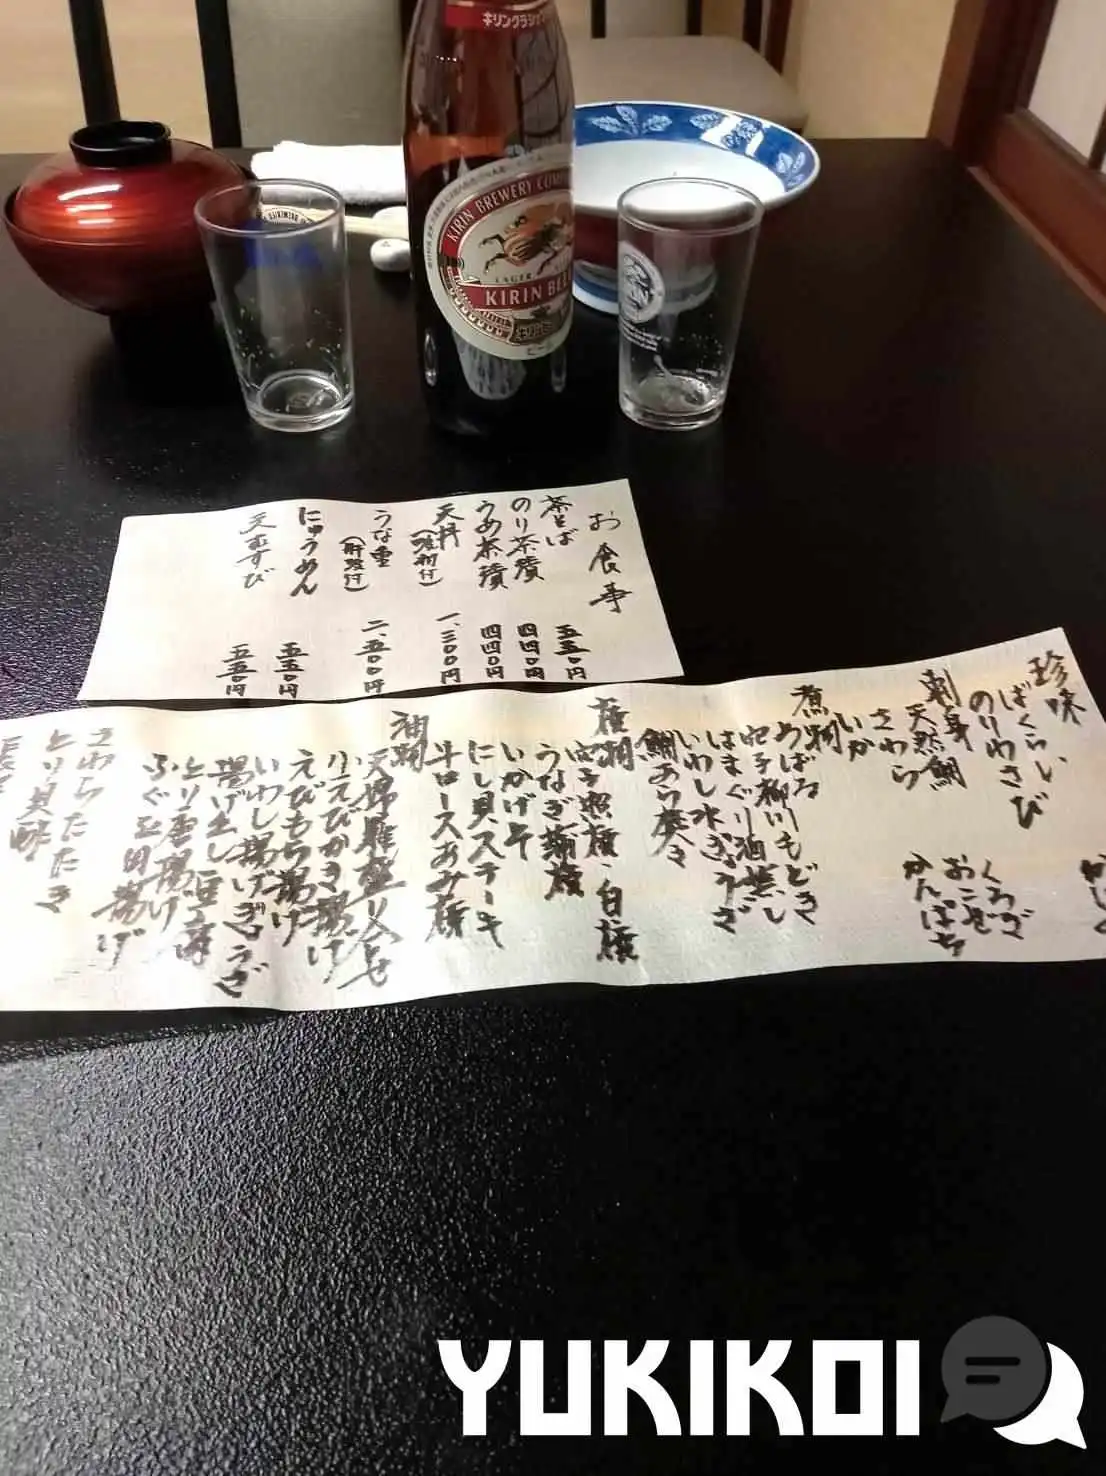 キリンラガ
KIRIN BREWERY COMP
LAGER
KIRIN BEE
ビール
お食事
茶そば 五五〇円
のり茶漬 四四〇円
うめ茶漬 四四〇円
天丼(味噌汁付) 一、三〇〇円
うな重(肝吸付) 二、五〇〇円
にゅうめん 五五〇円
天むすび 五五〇円
珍味
ばくらい
のりわさび
刺身
天然鯛
さわら
いか
くろざ
おこぜ
かんぱち
煮物
めばる
穴子柳川もどき
はまぐり酒蒸し
いわし水ぎょうざ
鯛あら炊き
焼物
穴子照焼・白焼
うなぎ蒲焼
いかげそ
にし貝ステーキ
牛ロースあみ焼
油物
天婦羅盛り合せ
小えびかき揚げ
えびもち揚げ
いわし揚げぎょうざ
揚げ出し豆腐
とり唐揚げ
ふぐ
揚げ
さわらたたき
とり貝酢
YUKIKOI